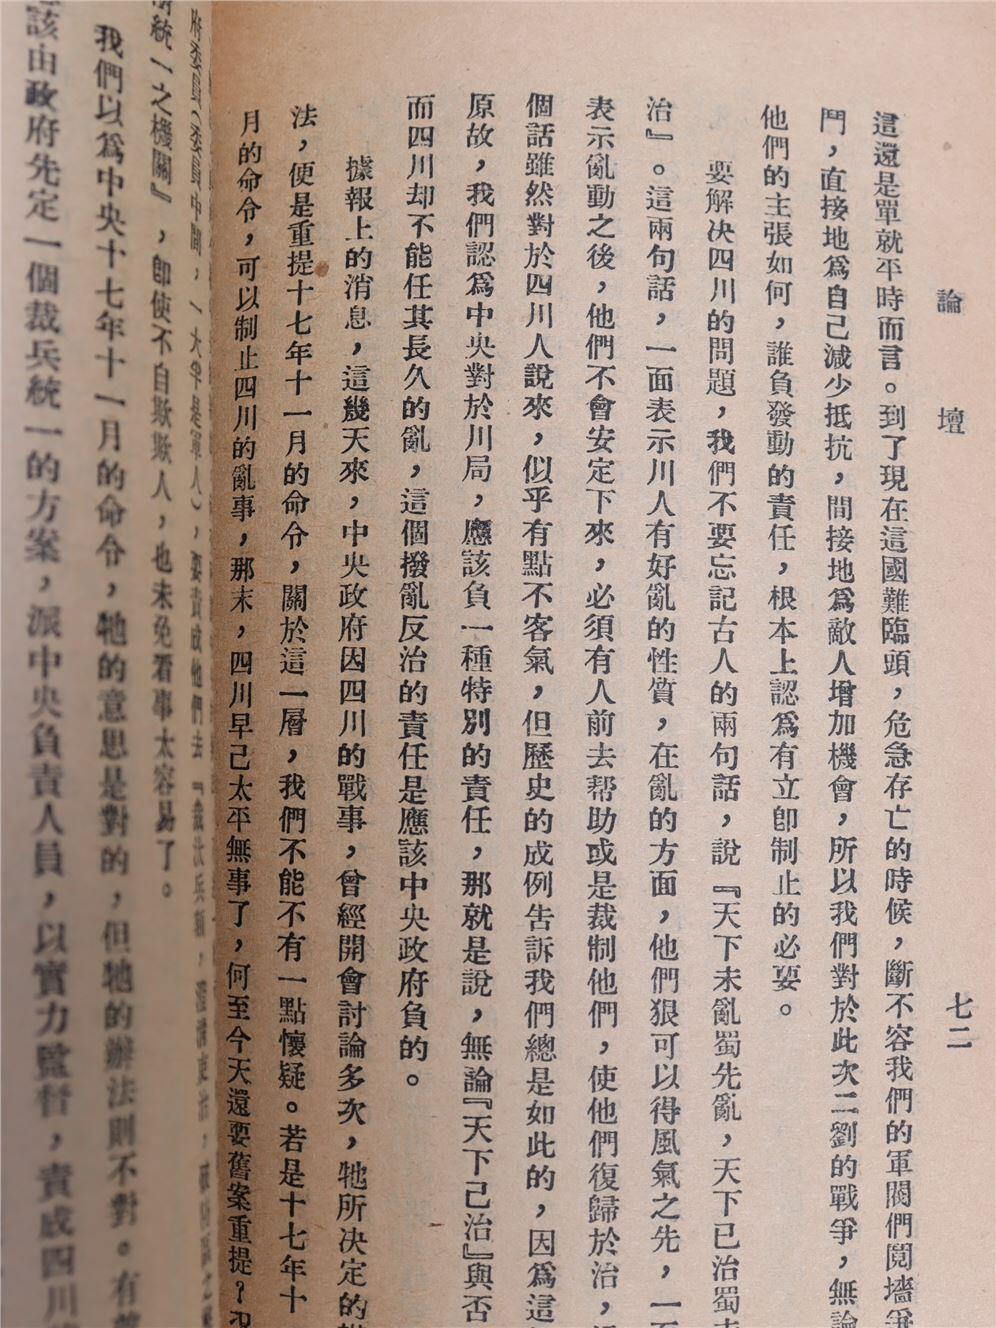 論壇
七二
這還是單就平時而言。到了現在這國難臨頭，危急存亡的時候，斷不容我們的軍閥們鬩墻爭
鬥，直接地爲自己減少抵抗，間接地爲敵人增加機會，所以我們對於此次二劉的戰爭，無論
他們的主張如何，誰負發動的責任，根本上認爲有立卽制止的必要。
要解决四川的問題，我們不要忘記古人的兩句話，說『天下未亂蜀先亂，天下已治蜀未
治』。這兩句話，一面表示川人有好亂的性質，在亂的方面，他們狠可以得風氣之先，一
表示亂動之後，他們不會安定下來，必須有人前去帮助或是裁制他們，使他們復歸於治，
個話雖然對於四川人說來，似乎有點不客氣，但歷史的成例告訴我們總是如此的，因爲這
原故，我們認爲中央對於川局，應該負一種特別的責任，那就是說，無論『天下已治』與否
而四川却不能任其長久的亂，這個撥亂反治的責任是應該中央政府負的。
據報上的消息，這幾天來，中央政府因四川的戰事，曾經開會討論多次，牠所决定的
法，便是重提十七年十一月的命令，關於這一層，我們不能不有一點懷疑。若是十七年十
月的命令，可以制止四川的亂事，那末，四川早已太平無事了，何至今天還要舊案重提？況
府委員（委員中間，一大半是軍人），要責成他們去『裁汰兵額，澄清吏治，
統一之機關』，卽使不自欺欺人，也未免看事太容易了。
我們以爲中央十七年十一月的命令，牠的意思是對的，但牠的辦法則不對。有
該由政府先定一個裁兵統一的方案，派中央負責人員，以實力監督，責成四川